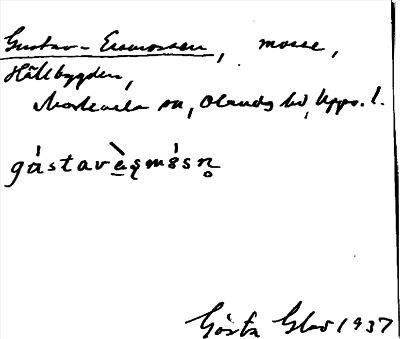 Gustav-Ersmossen, mosse,
Hållbygden,
Morkarla sn, Olands hd, Upps. l.
Gösta Glas 1937